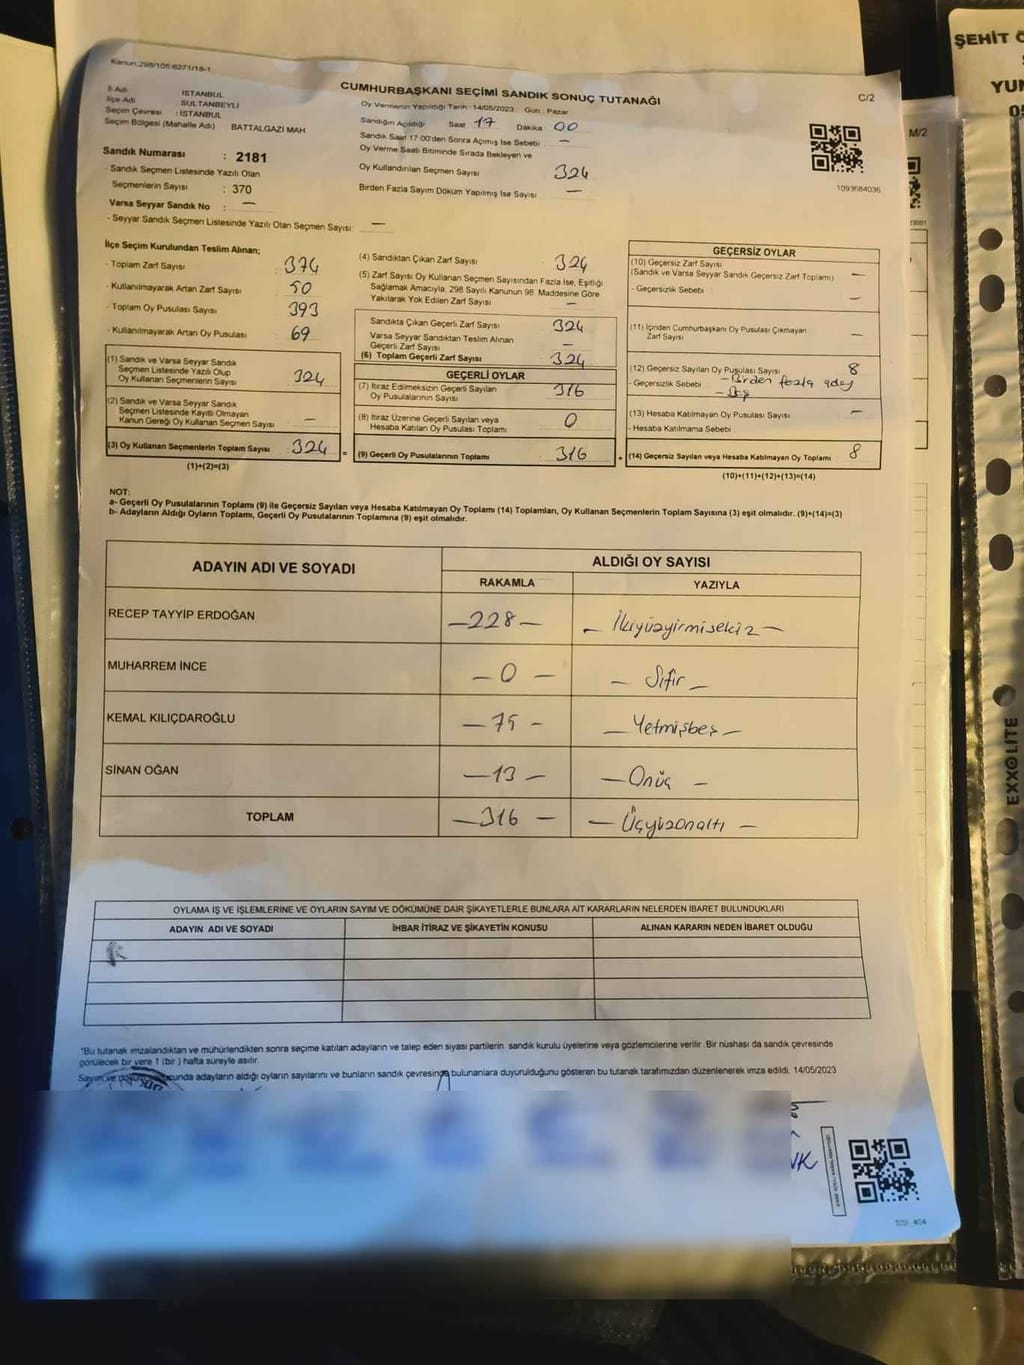 Kanun:298/105:6271/18-1
CUMHURBAŞKANI SEÇİMİ SANDIK SONUÇ TUTANAĞI
C/2
İl Adı : İSTANBUL
İlçe Adı SULTANBEYLİ
Seçim Çevresi : İSTANBUL
Seçim Bölgesi (Mahalle Adı) BATTALGAZİ MAH
Oy Vermenin Yapıldığı Tarih : 14/05/2023 Gün : Pazar
Sandığın Açıldığı Saat 17 Dakika 00
Sandık Saat 17.00'den Sonra Açılmış İse Sebebi : —
Oy Verme Saati Bitiminde Sırada Bekleyen ve
Oy Kullandırılan Seçmen Sayısı 324
Birden Fazla Sayım Döküm Yapılmış İse Sayısı —
1093684036
Sandık Numarası : 2181
- Sandık Seçmen Listesinde Yazılı Olan
Seçmenlerin Sayısı : 370
Varsa Seyyar Sandık No : —
- Seyyar Sandık Seçmen Listesinde Yazılı Olan Seçmen Sayısı: —
İlçe Seçim Kurulundan Teslim Alınan;
- Toplam Zarf Sayısı 374
- Kullanılmayarak Artan Zarf Sayısı 50
- Toplam Oy Pusulası Sayısı 393
- Kullanılmayarak Artan Oy Pusulası 69
(1) Sandık ve Varsa Seyyar Sandık
Seçmen Listesinde Yazılı Olup
Oy Kullanan Seçmenlerin Sayısı 324
(2) Sandık ve Varsa Seyyar Sandık
Seçmen Listesinde Kayıtlı Olmayan
Kanun Gereği Oy Kullanan Seçmen Sayısı —
(3) Oy Kullanan Seçmenlerin Toplam Sayısı 324 =
(1)+(2)=(3)
(4) Sandıktan Çıkan Zarf Sayısı 324
(5) Zarf Sayısı Oy Kullanan Seçmen Sayısından Fazla İse, Eşitliği
Sağlamak Amacıyla, 298 Sayılı Kanunun 98. Maddesine Göre
Yakılarak Yok Edilen Zarf Sayısı —
Sandıkta Çıkan Geçerli Zarf Sayısı 324
Varsa Seyyar Sandıktan Teslim Alınan
Geçerli Zarf Sayısı —
(6) Toplam Geçerli Zarf Sayısı 324
GEÇERLİ OYLAR
(7) İtiraz Edilmeksizin Geçerli Sayılan
Oy Pusulalarının Sayısı 316
(8) İtiraz Üzerine Geçerli Sayılan veya
Hesaba Katılan Oy Pusulası Toplamı 0
(9) Geçerli Oy Pusulalarının Toplamı 316 +
GEÇERSİZ OYLAR
(10) Geçersiz Zarf Sayısı
(Sandık ve Varsa Seyyar Sandık Geçersiz Zarf Toplamı) —
- Geçersizlik Sebebi —
(11) İçinden Cumhurbaşkanı Oy Pusulası Çıkmayan
Zarf Sayısı
(12) Geçersiz Sayılan Oy Pusulası Sayısı 8
- Geçersizlik Sebebi - Birden fazla aday
- Boş
(13) Hesaba Katılmayan Oy Pusulası Sayısı —
- Hesaba Katılmama Sebebi
(14) Geçersiz Sayılan veya Hesaba Katılmayan Oy Toplamı 8
(10)+(11)+(12)+(13)=(14)
NOT:
a- Geçerli Oy Pusulalarının Toplamı (9) ile Geçersiz Sayılan veya Hesaba Katılmayan Oy Toplamı (14) Toplamları, Oy Kullanan Seçmenlerin Toplam Sayısına (3) eşit olmalıdır. (9)+(14)=(3)
b- Adayların Aldığı Oyların Toplamı, Geçerli Oy Pusulalarının Toplamına (9) eşit olmalıdır.
ADAYIN ADI VE SOYADI
ALDIĞI OY SAYISI
RAKAMLA YAZIYLA
RECEP TAYYİP ERDOĞAN —228— — İkiyüzyirmisekiz —
MUHARREM İNCE — 0 — — Sıfır —
KEMAL KILIÇDAROĞLU — 75 — — Yetmişbeş —
SİNAN OĞAN — 13 — — Onüç —
TOPLAM — 316 — — Üçyüzonaltı —
OYLAMA İŞ VE İŞLEMLERİNE VE OYLARIN SAYIM VE DÖKÜMÜNE DAİR ŞİKAYETLERLE BUNLARA AİT KARARLARIN NELERDEN İBARET BULUNDUKLARI
ADAYIN ADI VE SOYADI İHBAR İTİRAZ VE ŞİKAYETİN KONUSU ALINAN KARARIN NEDEN İBARET OLDUĞU
*Bu tutanak imzalandıktan ve mühürlendikten sonra seçime katılan adayların ve talep eden siyasi partilerin sandık kurulu üyelerine veya gözlemcilerine verilir. Bir nüshası da sandık çevresinde
görülecek bir yere 1 (bir ) hafta süreyle asılır.
Sayım ve adayların aldığı oyların sayılarını ve bunların sandık çevresinde bulunanlara duyurulduğunu gösteren bu tutanak tarafımızdan düzenlenerek imza edildi. 14/05/2023
ŞEHİT
YUN
M/2
EXXOLITE